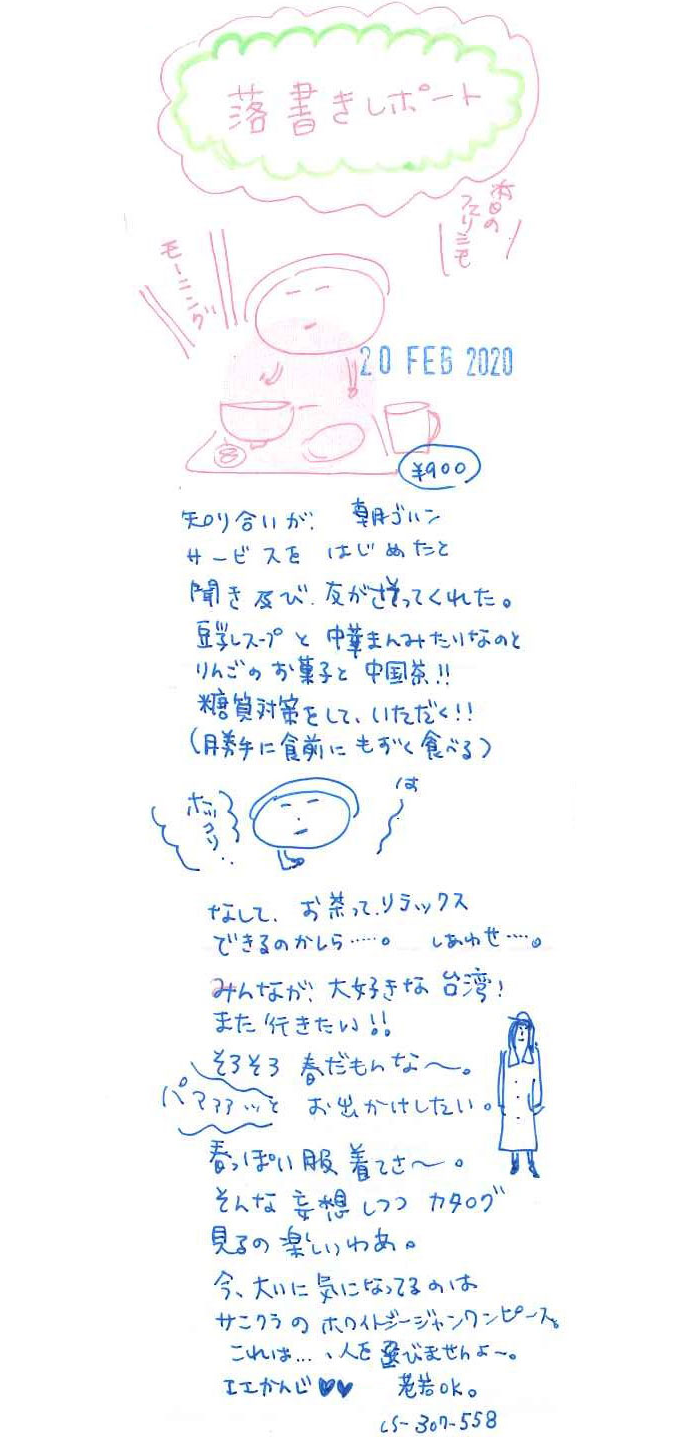 落書きレポート
本日の
フェリシモ
モーニング
20 FEB 2020
¥900
知り合いが、朝ゴハン
サービスを はじめたと
聞き及び、友がさそってくれた。
豆乳スープと 中華まんみたいなのと
りんごのお菓子と 中国茶!!
糖質対策をして、いただく!!
(勝手に食前にもずく食べる)
は
ホックリ..
なして、お茶って、リラックス
できるのかしら……。 しあわせ……。
みんなが、大好きな 台湾!
また 行きたい!!
そろそろ 春だもんな〜。
パァァァッと お出かけしたい。
春っぽい服 着てさ〜。
そんな 妄想しつつ カタログ
見るの 楽しいわぁ。
今、大いに 気になってるのは
サニクラの ホワイトジージャンワンピース。
これは…、人を 選びませんよ〜。
エエかんじ♥♥ 老若OK。
LS-307-558